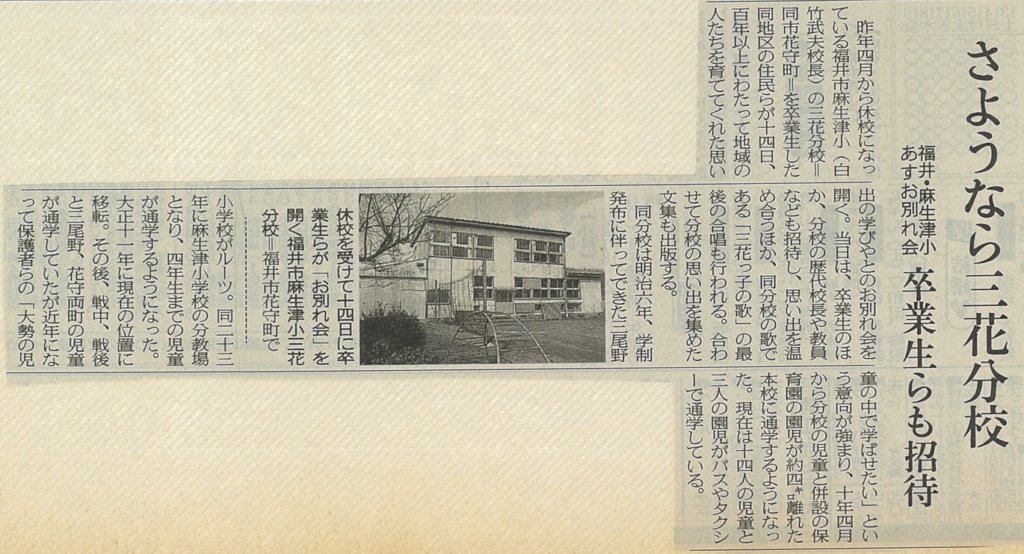 さようなら三花分校
福井・麻生津小
あすお別れ会
卒業生らも招待
昨年四月から休校になっ
ている福井市麻生津小（白
竹武夫校長）の三花分校＝
同市花守町＝を卒業生した
同地区の住民らが十四日、
百年以上にわたって地域の
人たちを育ててくれた思い
出の学びやとのお別れ会を
開く。当日は、卒業生のほ
か、分校の歴代校長や教員
なども招待し、思い出を温
め合うほか、同分校の歌で
ある「三花っ子の歌」の最
後の合唱も行われる。合わ
せて分校の思い出を集めた
文集も出版する。
同分校は明治六年、学制
発布に伴ってできた三尾野
休校を受けて十四日に卒
業生らが「お別れ会」を
開く福井市麻生津小三花
分校＝福井市花守町で
小学校がルーツ。同二十三
年に麻生津小学校の分教場
となり、四年生までの児童
が通学するようになった。
大正十一年に現在の位置に
移転。その後、戦中、戦後
と三尾野、花守両町の児童
が通学していたが近年にな
って保護者らの「大勢の児
童の中で学ばせたい」とい
う意向が強まり、十年四月
から分校の児童と併設の保
育園の園児が約四㌔離れた
本校に通学するようになっ
た。現在は十四人の児童と
三人の園児がバスやタクシ
ーで通学している。